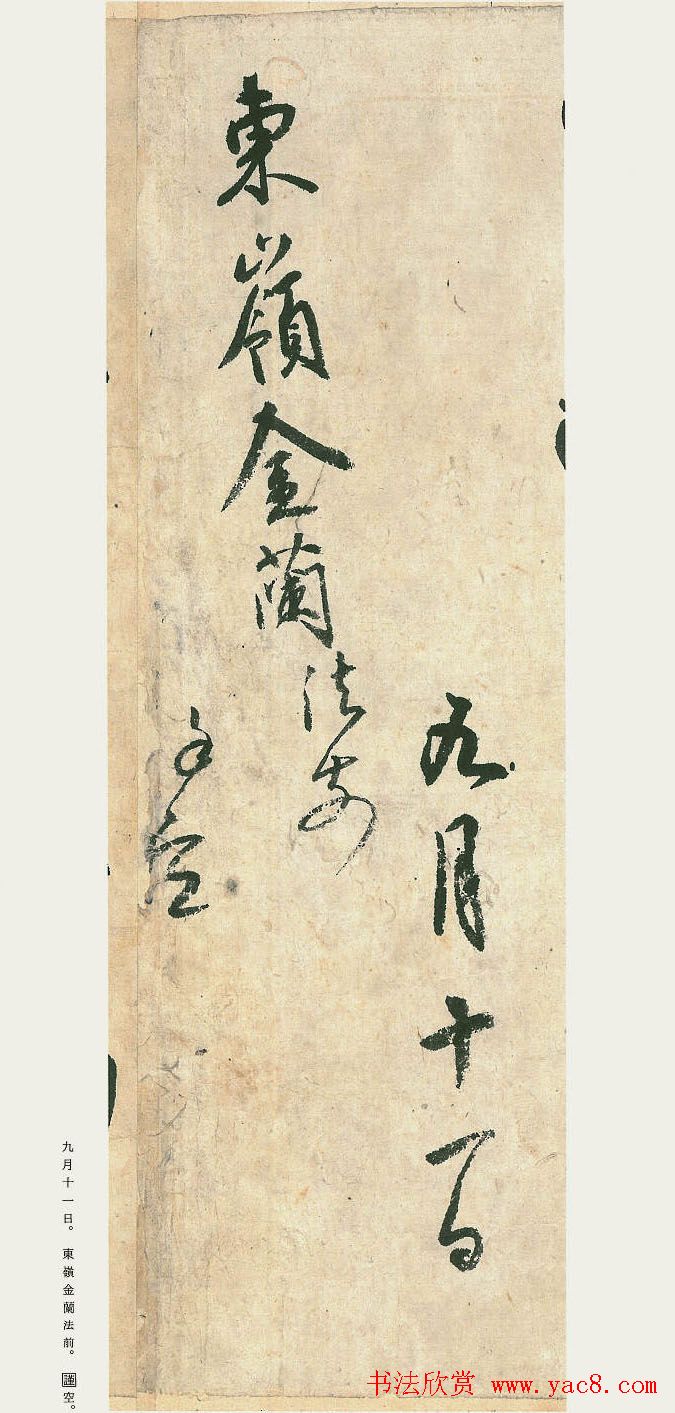 九月十一日
東嶺金蘭法前
空
九月十一日。東嶺金蘭法前。謹空。
书法欣赏 www.yac8.com